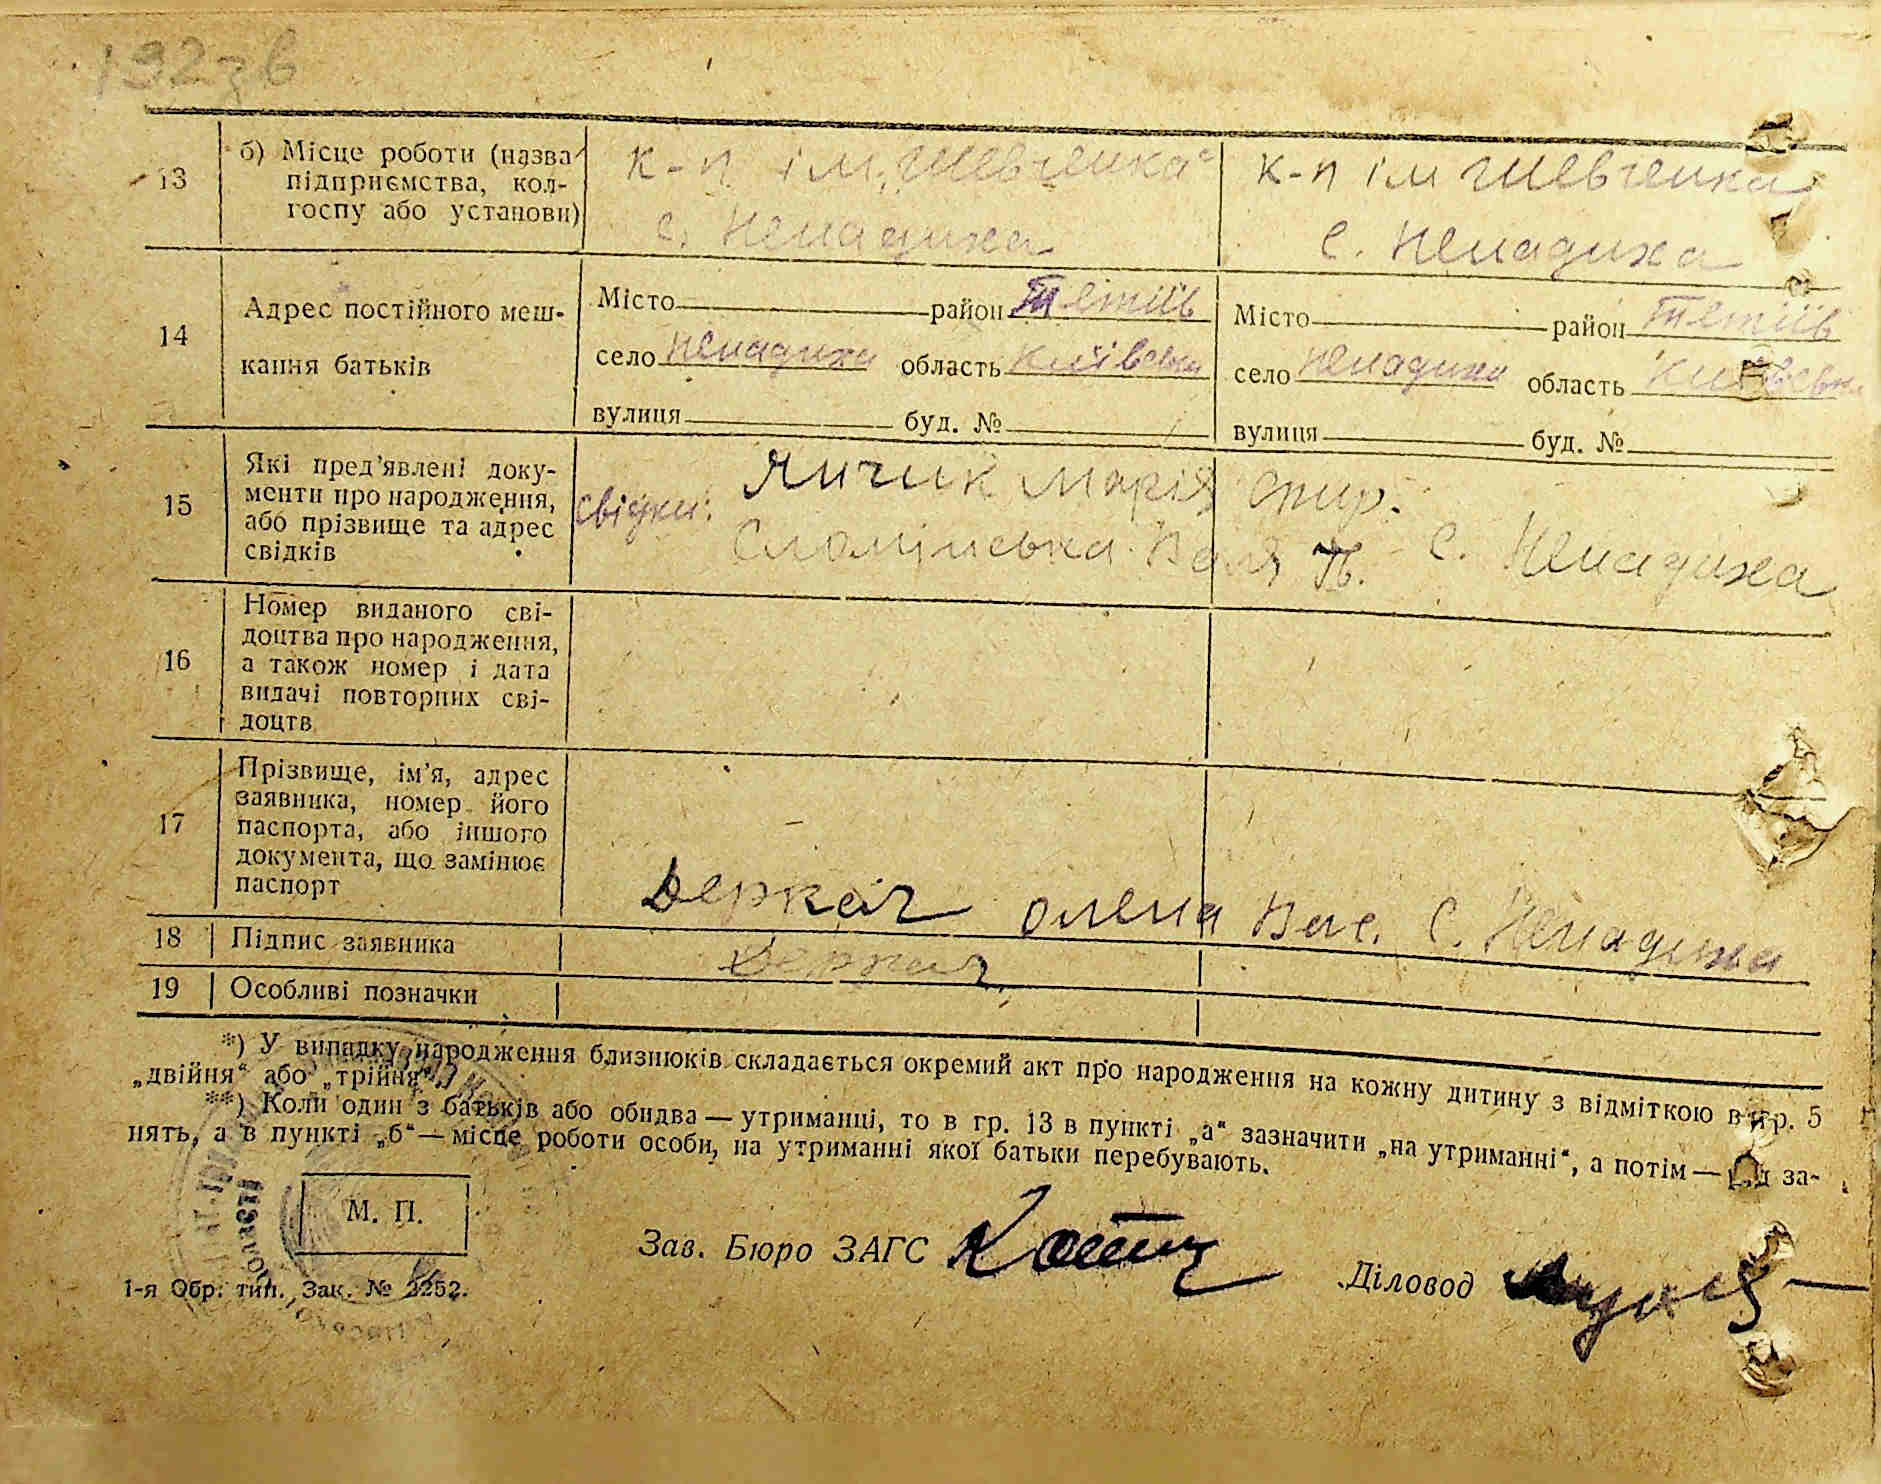 192зв
13
б) Місце роботи (назва
підприємства, кол-
госпу або установи)
к-п ім. Шевченка
с. Ненадиха
к-п ім Шевченка
с. Ненадиха
14
Адрес постійного меш-
кання батьків
Місто район Тетіїв
село Ненадиха область Київська
вулиця буд. №
Місто район Тетіїв
село Ненадиха область Київська
вулиця буд. №
15
Які пред'явлені доку-
менти про народження,
або прізвище та адрес
свідків
свідки: Янчик Марія Спир.
Сломінська Валя П. с. Ненадиха
16
Номер виданого сві-
доцтва про народження,
а також номер і дата
видачі повторних сві-
доцтв
17
Прізвище, ім'я, адрес
заявника, номер його
паспорта, або іншого
документа, що замінює
паспорт
Деркач Олена Вас. С. Ненадиха
18 Підпис заявника Деркач
19 Особливі позначки
*) У випадку народження близнюків складається окремий акт про народження на кожну дитину з відміткою в гр. 5
„двійня“ або „трійня“.
**) Коли один з батьків або обидва — утриманці, то в гр. 13 в пункті „а“ зазначити „на утриманні“, а потім — рід за-
нять, а в пункті „б“ — місце роботи особи, на утриманні якої батьки перебувають.
М. П.
Зав. Бюро ЗАГС
Діловод
1-я Обр. тип. Зак. № 2252.